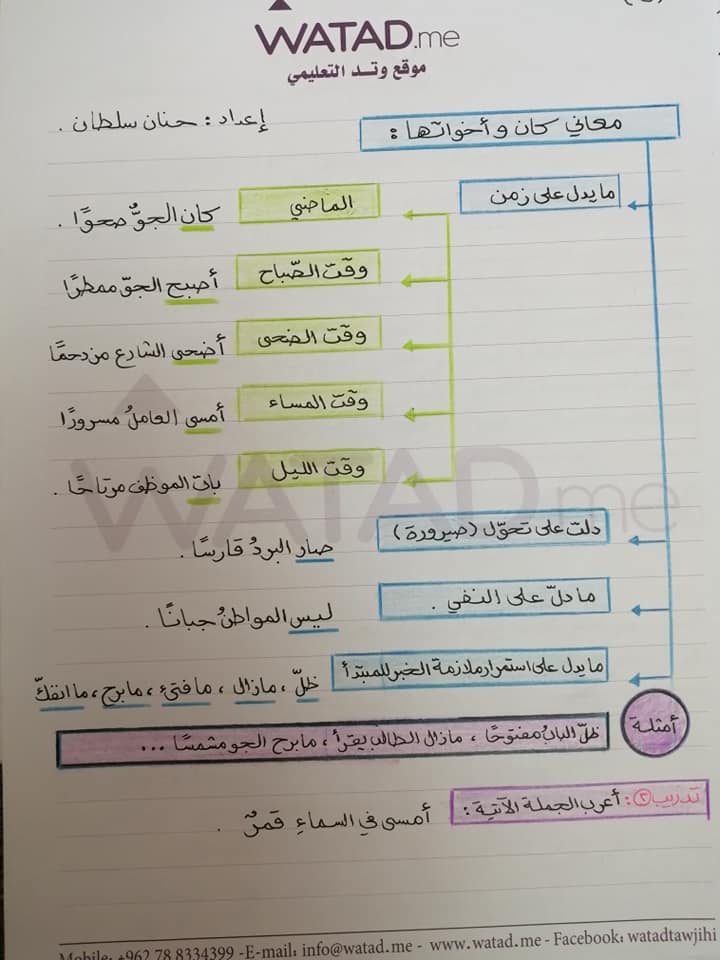 WATAD.me
موقع وتد التعليمي
معاني كان وأخواتها :
إعداد : حنان سلطان .
ما يدل على زمن
الماضي
كان الجوُّ صحوًا .
وقت الصّباح
أصبح الجوّ ممطرًا
وقت الضحى
أضحى الشارع مزدحمًا
وقت المساء
أمسى العاملُ مسرورًا
وقت الليل
بات الموظف مرتاحًا .
WATAD.me
دلت على تحوّل (صيرورة)
صار البردُ قارسًا .
ما دلّ على النفي .
ليس المواطنُ جبانًا .
ما يدل على استمرار ملازمة الخبر للمبتدأ
ظلّ ، مازال ، ما فتئ ، مابرح ، ما انفكّ
أمثلة
ظلّ البابُ مفتوحًا ، مازال الطالب يقرأ ، مابرح الجو مشمسًا ...
تدريب ٢ : أعرب الجملة الآتية :
أمسى في السماءِ قمرٌ .
Mobile: +962 78 8334399 -E-mail: info@watad.me - www.watad.me - Facebook: watadtawjihi